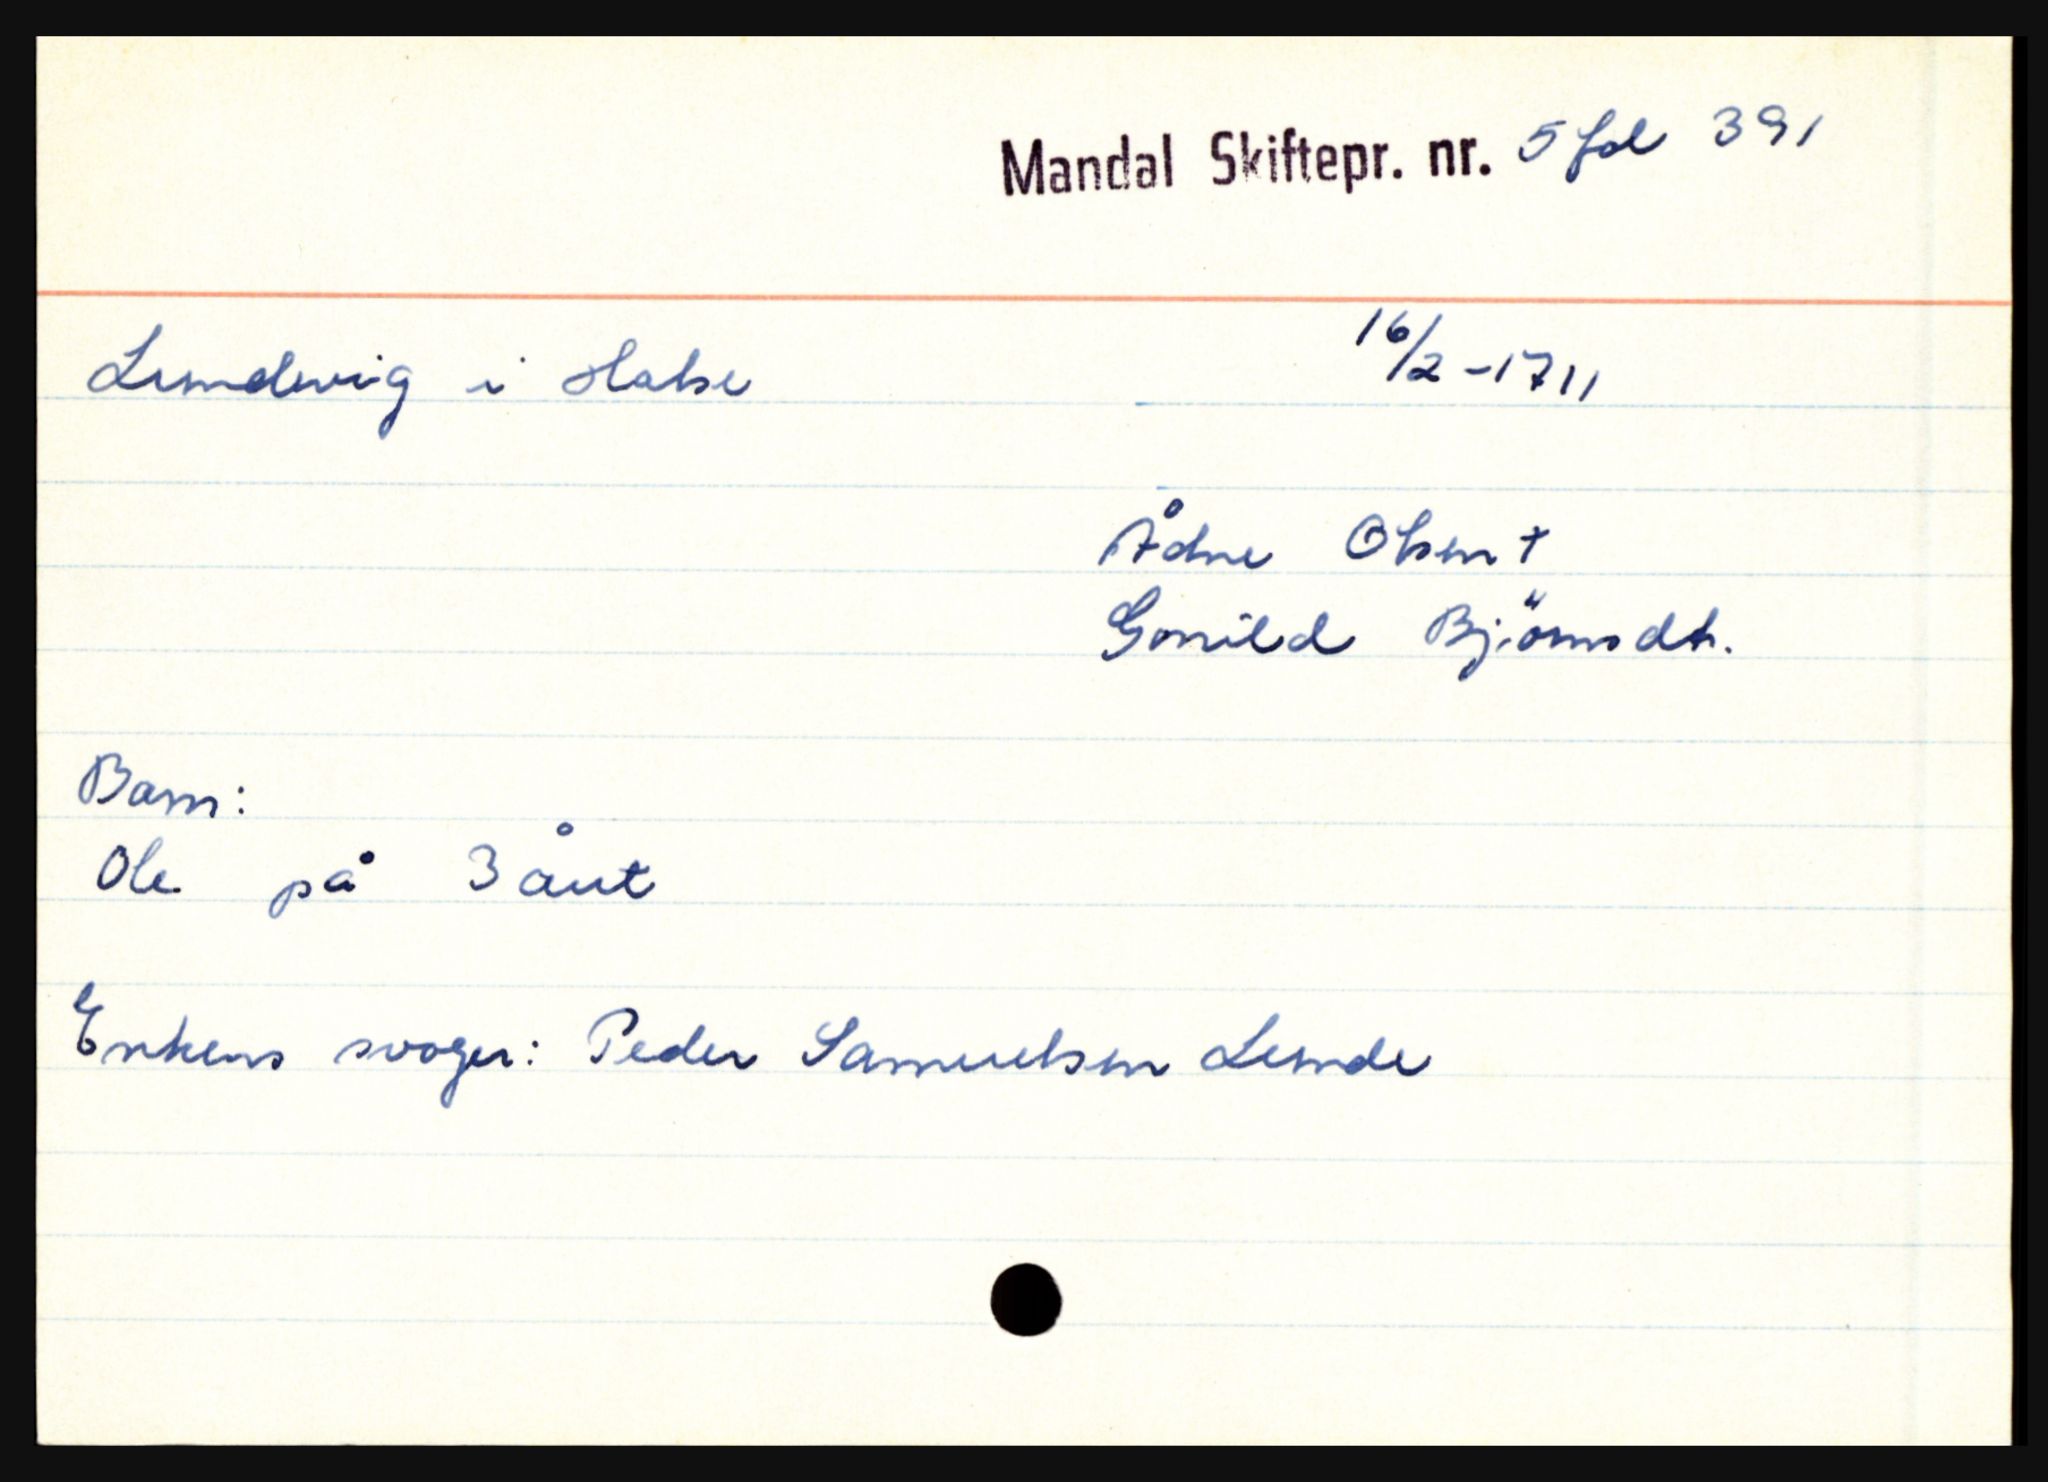 Mandal Skiftepr. nr. 5 fol 391
Lundevig i Halse 16/2 - 1711
Ådne Olsen +
Gonild Björnsdtr.
Barn:
Ole på 3 aust
Enkens svoger: Peder Samuelsen Lunde